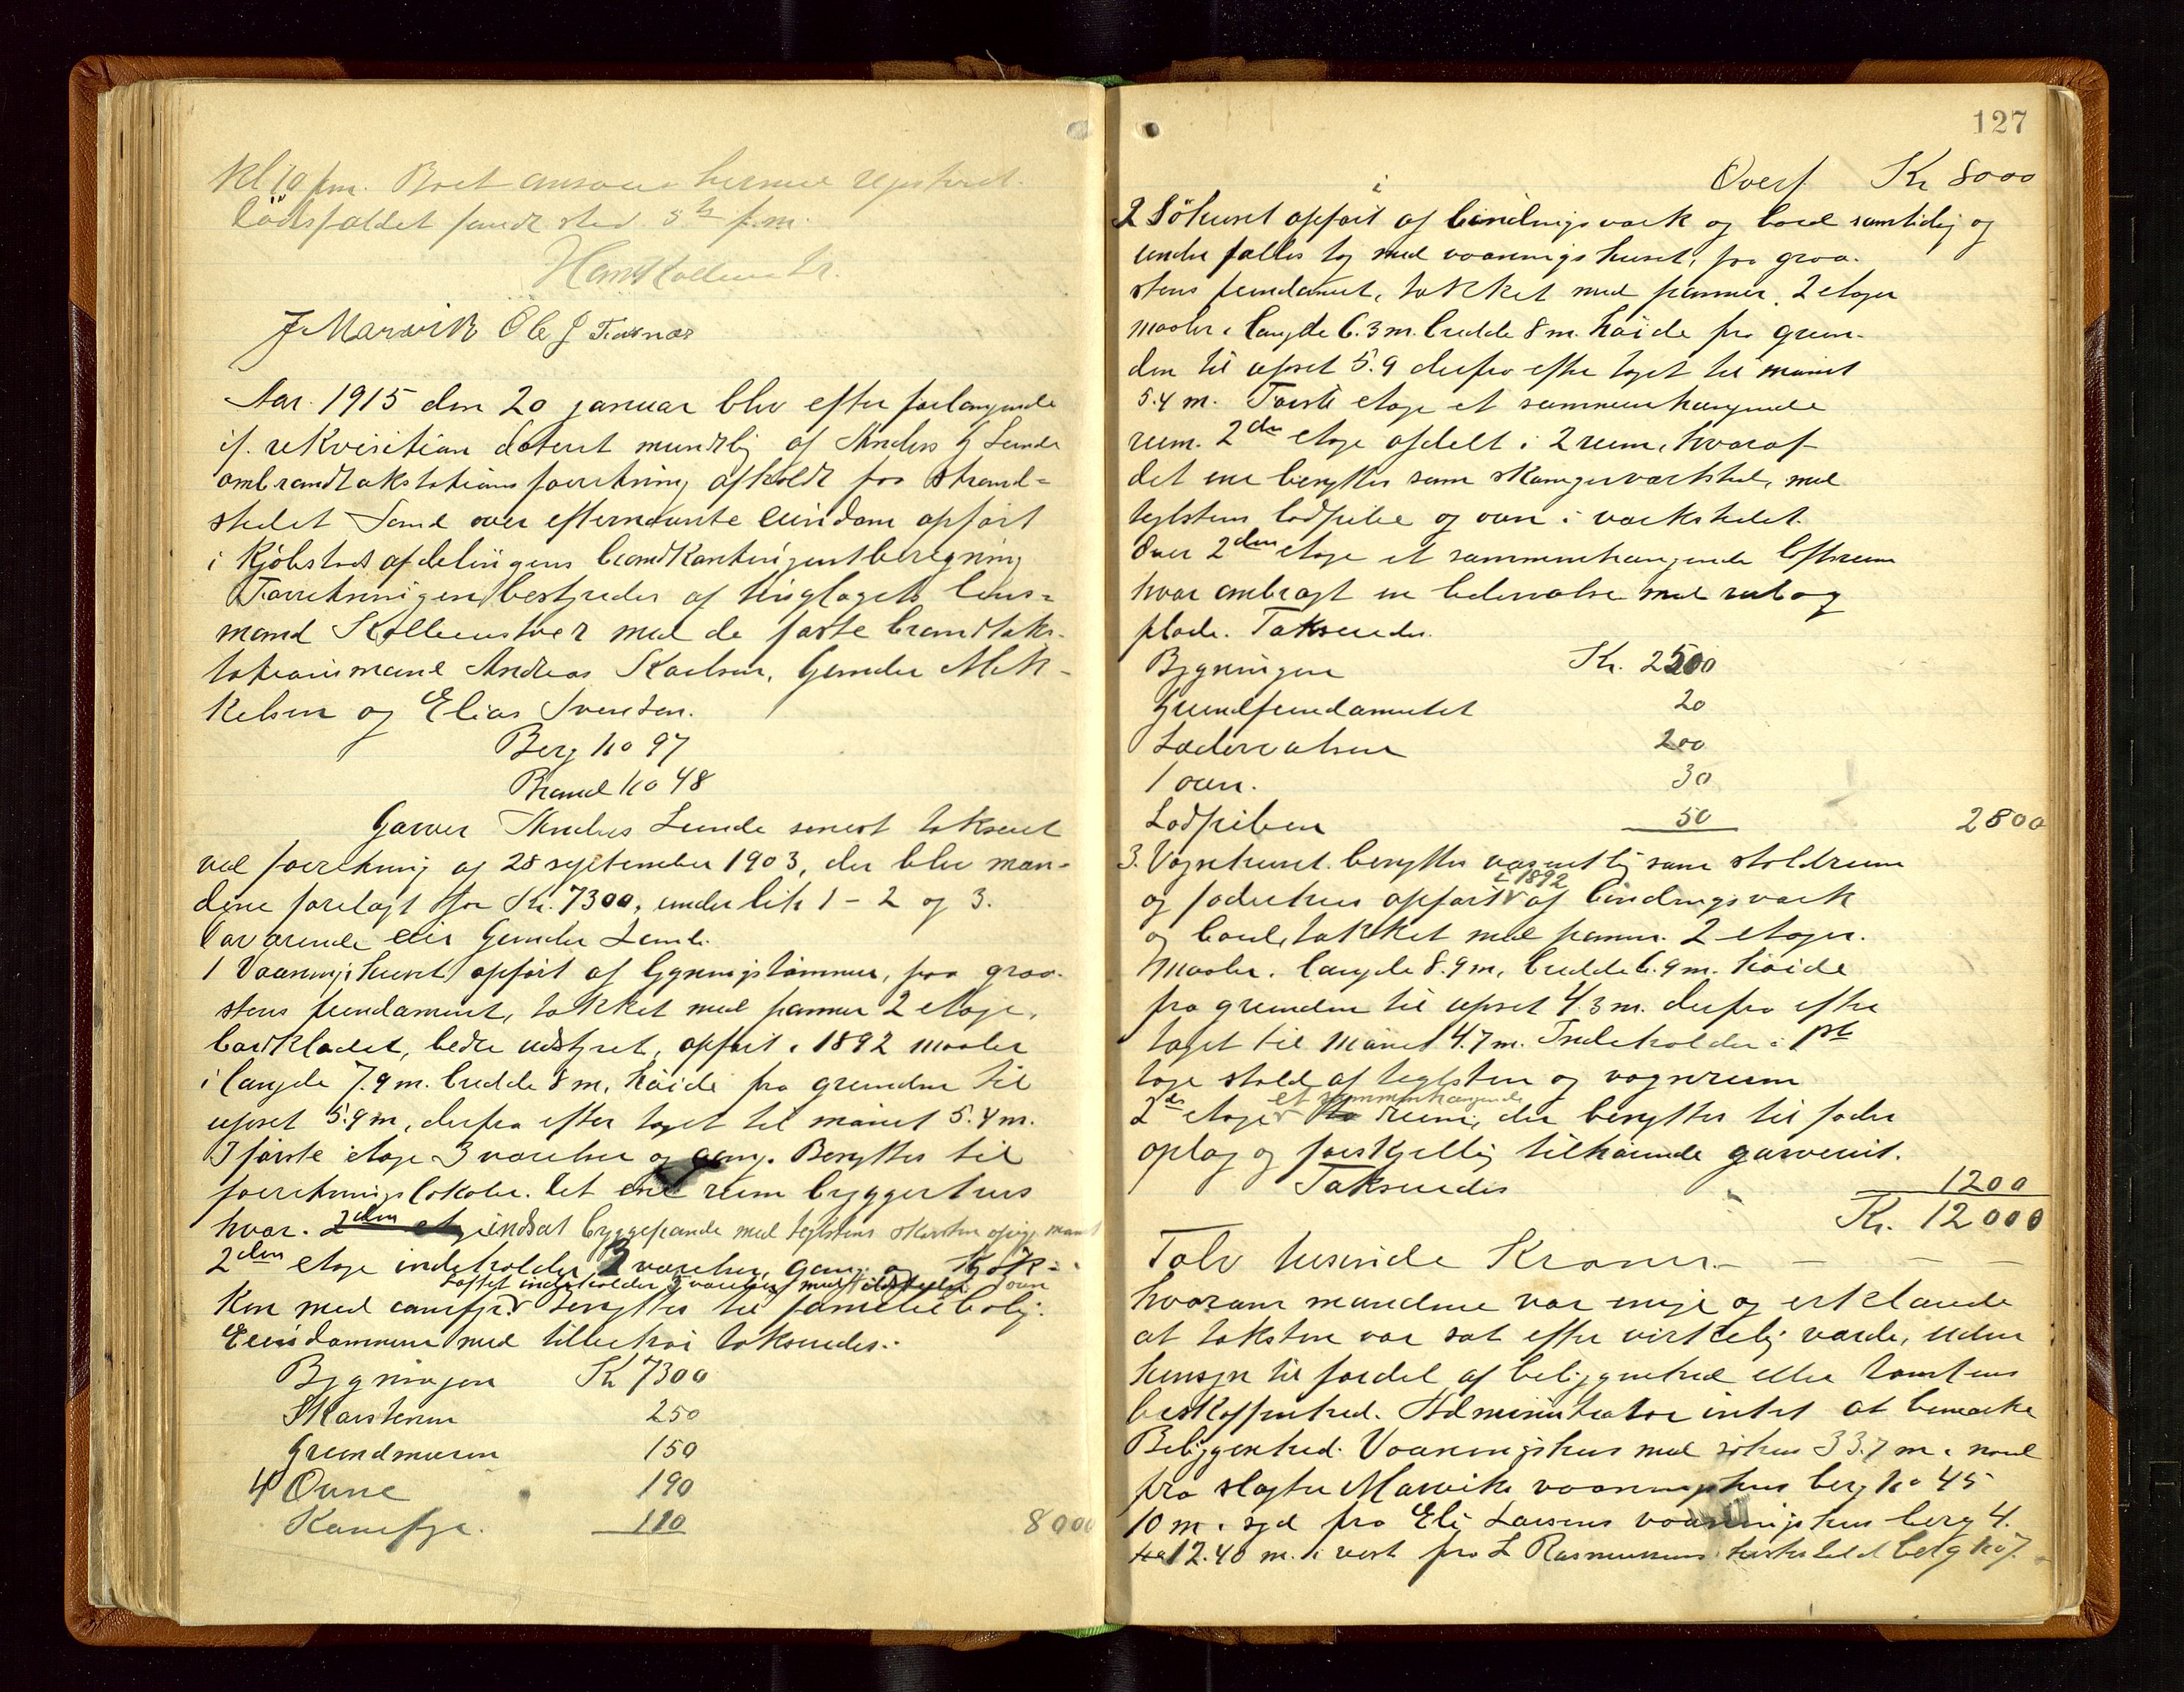 Kl 10 fm. Boet ansaaes hermed registreret.
Dödsfaldet fandt sted 5te f.m.
Hans Kolleustvedt
J. Marvik Ole J
Aar 1915 den 20 januar blev efter forlangende
if. rekvisition dateret mundtlig af Anders G Lunde
ombrandtakstationsforretning afholdt paa strand=
stedet Sand over efternævnte eiendom opført
i Kjøbstadafdelingens brandkontingentberegning
Forretningen bestyredes af tinglagets lens=
mand med de faste brandtaks-
tationsmænd Andreas Karlsen, Gunder Mik-
kelsen og Elias Svendsen.
Berg No 97
Brand No 48
Garver Anders Lunde senest takseret
ved forretning af 28 september 1903, der blev mæn-
dene forelagt for Kr. 7300, under litr 1 - 2 og 3.
Daværende eier Gunder Lunde.
1 Vaaningshuset opført af bygningstømmer, paa graa-
stens fundament, tækket med panner 2 etage,
bordklædet, bedre udstyret, opført i 1892 maaler
i længde 7.9 m. bredde 8 m, høide fra grunden til
upset 5.9 m, derfra efter taget til mønet 5.4 m.
I første etage 3 værelser og gang. Benyttes til
forretningslokaler. Det ene rum bryggerhus
hvor 2den et indsat bryggepande med teglstens skorsten
2den etage indeholder 3 værelser, gang og kjøk-
Loftet indeholder 3 værelser med ovn
ken med comfyr benyttes til familiebolig.
Eiendommen med tilbehør takseredes:
Bygningen Kr 7300
Skorstenen 250
Grundmuren 150
4 Ovne 190
Komfyr. 110 8000
127
Overf Kr 8000
i
2 Söhuset opført af bindingsværk og bord samtidig og
under fælles tag med vaaningshuset, paa graa-
stens fundament, tækket med panner. 2 etager
maaler i længde 6.3 m. bredde 8 m. høide fra grun-
den til upset 5.9 derfra efter taget til mønet
5.4 m. Første etage et sammenhængende
rum. 2den etage afdelt i 2 rum, hvoraf
det ene benyttes som skomagerværksted, med
teglstens lodpibe og ovn i værkstedet.
Over 2den etage et sammenhængende loftsrum
hvor anbragt en ledervalse med rul og
plade. Takseredes.
Bygningen Kr. 2500
Grundfundamentet 20
Lædervalsen 200
1 ovn. 30
Lodpiben 50 2800
3. Vognhuset benyttes væsentlig som staldrum
i 1892
og foderhus opført af bindingsværk
og bord, tækket med panner. 2 etager.
Maaler i længde 8.9 m, bredde 6.9 m. høide
fra grunden til upset 4.3 m. derfra efter
taget til mønet 4.7 m. Indeholder i 1ste
tage stald af teglsten og vognrum
et sammenhængende
2de etage to rum, der benyttes til foder
oplag og forskjellig tilhørende garveriet.
Takseredes 1200
Kr. 12000
Tolv tusinde Kroner. - - -
hvorom mændene var enige og erklærede
at taksten var sat efter virkelig værde, uden
hensyn til fordel af beliggenhed eller tomtens
beskaffenhed. Administrator intet at bemærke
Beliggenhed. Vaaningshus med söhus 33.7 m. i nord
fra slagter Marviks vaaningshus berg No 45
10 m. i syd fra Eli Larsens vaaningshus berg 4.
12.40 m. i vest fra L Rasmussens berg No 7.